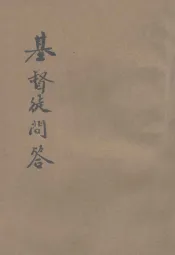 基督徒問答